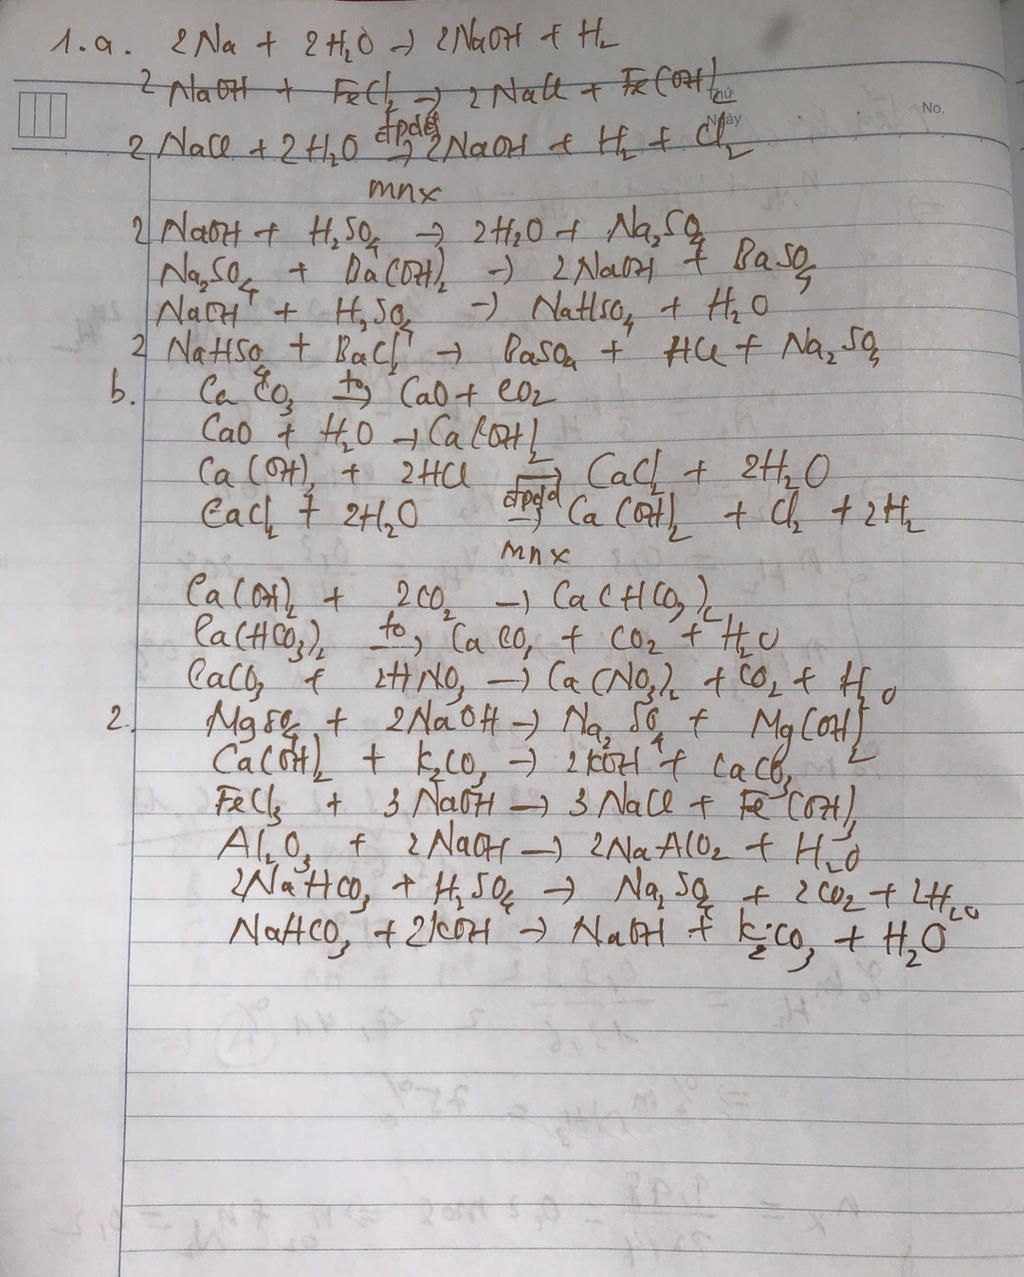 1.a. 2Na + 2H₂O → 2NaOH + H₂
2 NaOH + FeCl₂ → 2NaCl + Fe(OH)₂
Thứ
Ngày
No.
đpdd
2 NaCl + 2H₂O → 2NaOH + H₂ + Cl₂
mnx
2 NaOH + H₂SO₄ → 2H₂O + Na₂SO₄
Na₂SO₄ + Ba(OH)₂ → 2NaOH + BaSO₄
NaOH + H₂SO₄ → NaHSO₄ + H₂O
2 NaHSO₄ + BaCl₂ → BaSO₄ + HCl + Na₂SO₄
b. CaCO₃ to→ CaO + CO₂
CaO + H₂O → Ca(OH)₂
Ca(OH)₂ + 2HCl → CaCl₂ + 2H₂O
đpdd
CaCl₂ + 2H₂O → Ca(OH)₂ + Cl₂ + 2H₂
mnx
Ca(OH)₂ + 2CO₂ → Ca(HCO₃)₂
Ca(HCO₃)₂ to→ CaCO₃ + CO₂ + H₂O
CaCO₃ + 2HNO₃ → Ca(NO₃)₂ + CO₂ + H₂O
2. MgSO₄ + 2NaOH → Na₂SO₄ + Mg(OH)₂
Ca(OH)₂ + K₂CO₃ → 2KOH + CaCO₃
FeCl₃ + 3NaOH → 3NaCl + Fe(OH)₃
Al₂O₃ + 2NaOH → 2NaAlO₂ + H₂O
2NaHCO₃ + H₂SO₄ → Na₂SO₄ + 2CO₂ + 2H₂O
NaHCO₃ + 2KOH → NaOH + K₂CO₃ + H₂O